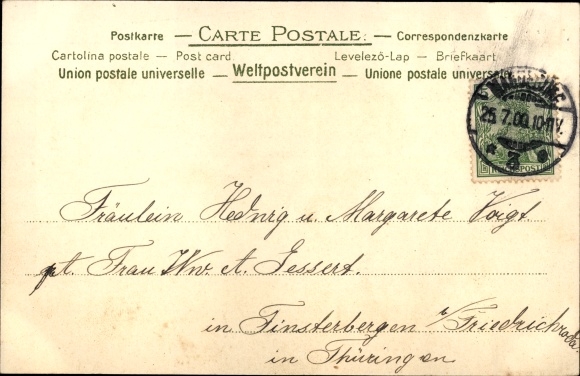 Postkarte — CARTE POSTALE. — Correspondenzkarte
Cartolina postale — Post card Levelező-Lap — Briefkaart
Union postale universelle — Weltpostverein — Unione postale universelle
25.7.00.10-11V.
* 2
Fräulein Hedwig u. Margarete Voigt
pt. Frau Ww. A. Gessert.
in Finsterbergen b/Friedrichroda
in Thüringen